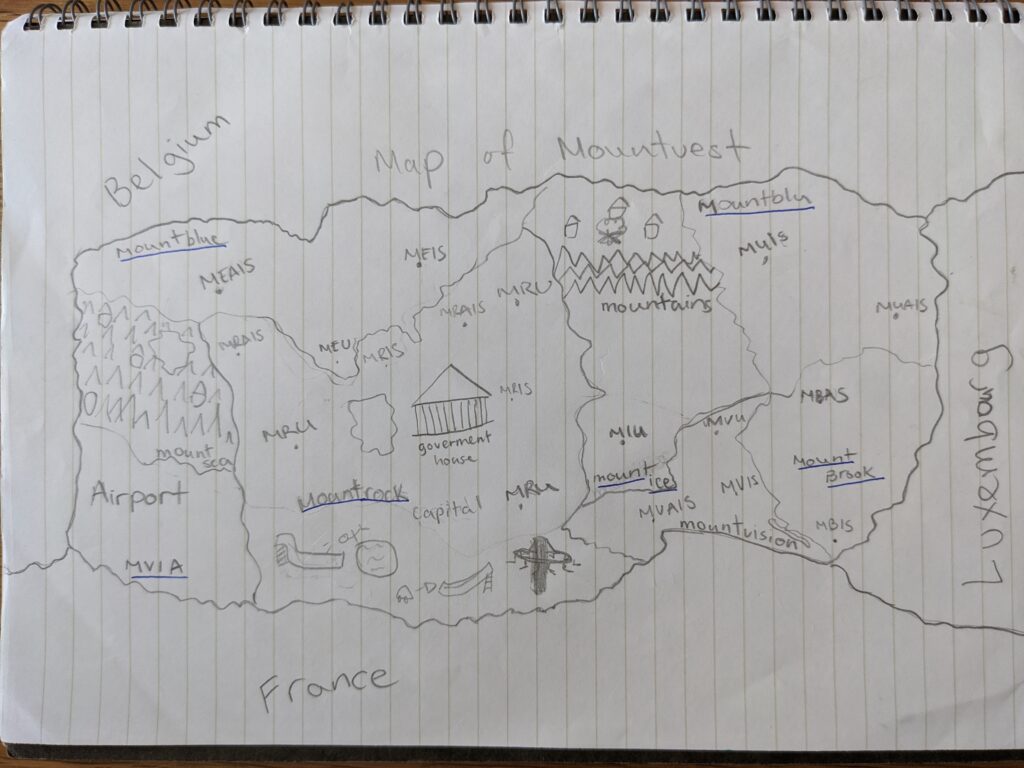 Map of Mountvest
Belgium
Mountblue
Mountblu
MEAIS
MEIS
MUIS
MRU
MRAIS
mountains
MUAIS
MRAIS
MEU
MRIS
MRIS
MBAS
MVU
MRU
MIU
goverment
house
mount
sea
Mount
Brook
mount
ice
Airport
Mountrock
Capital
MRU
MVIS
MVAIS
mountvision
MBIS
MVIA
Luxemburg
France